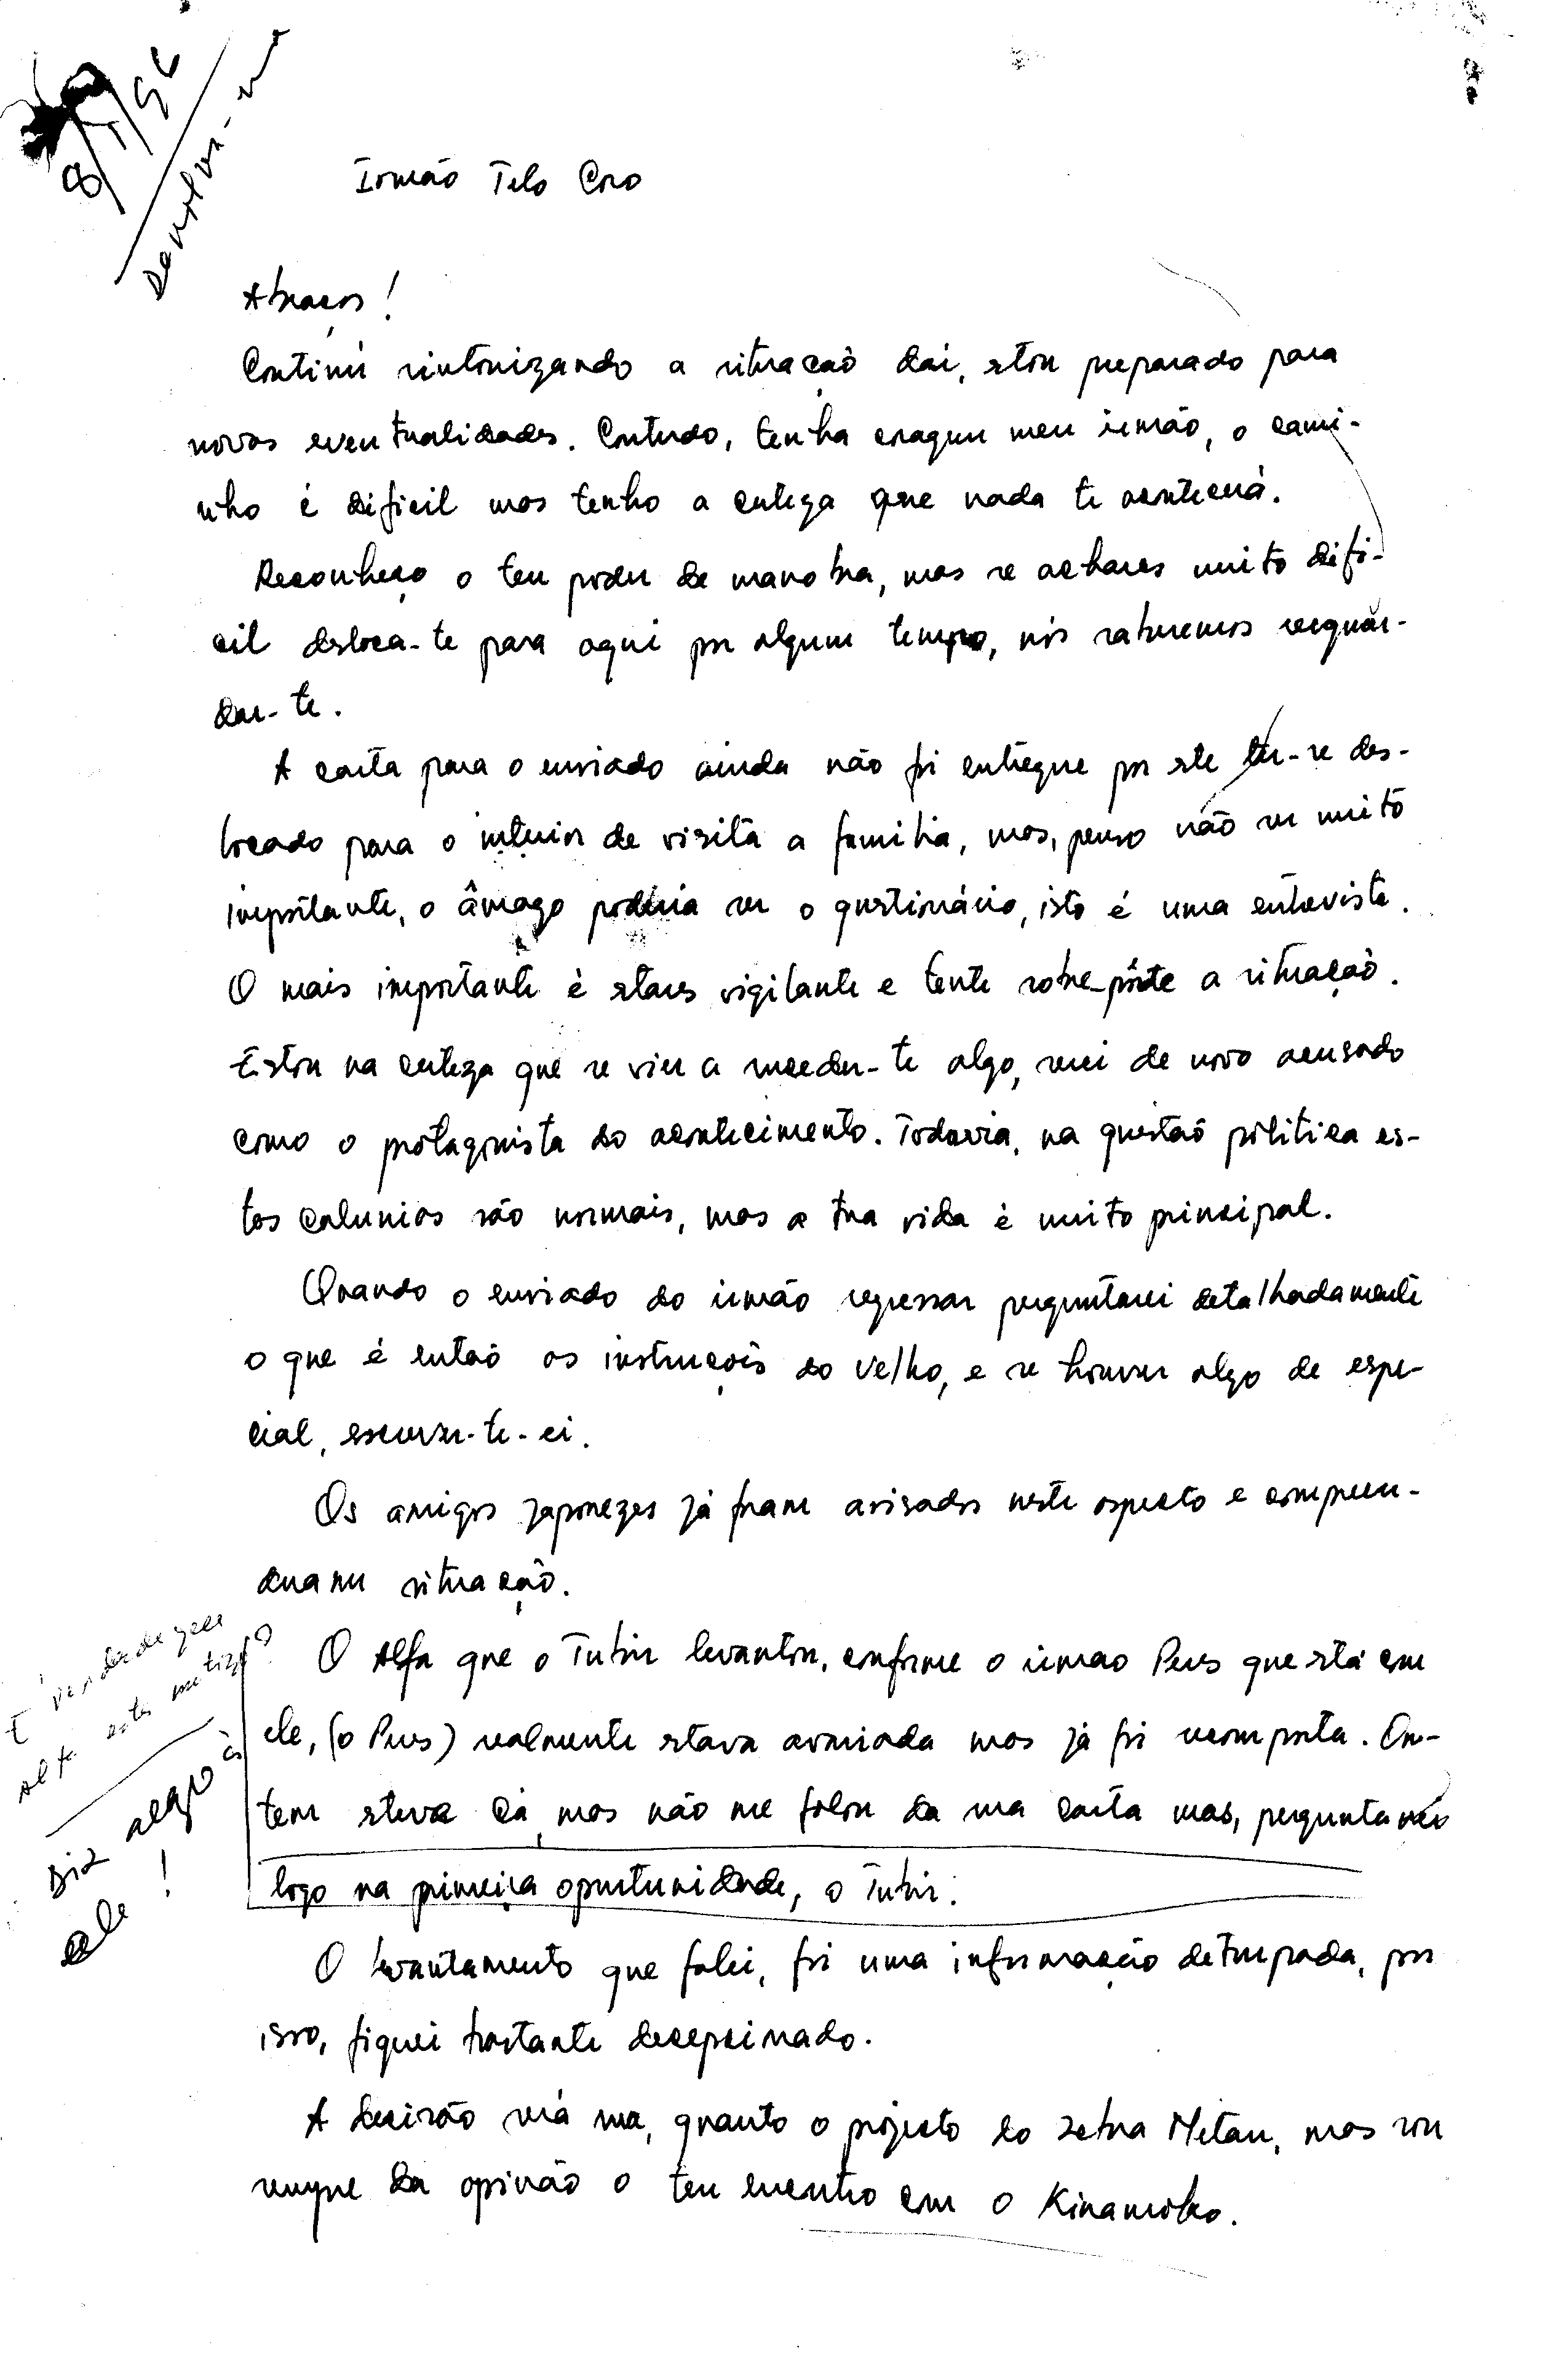 8/1/96
Devolva-me
Irmão Telo Coro
Abraços!
Continui sintonizando a situação daí, estou preparado para
novas eventualidades. Contudo, tenha coragem meu irmão, o cami-
nho é dificil mas tenho a certeza que nada te acontecerá.
Reconheço o teu poder de manobra, mas se achares muito difi-
cil desloca-te para aqui por algum tempo, nós saberemos resguar-
dar-te.
A carta para o enviado ainda não foi entregue por este ter-se des-
locado para o interior de visita a familia, mas, penso não ser muito
importante, o âmago poderia ser o questionário, isto é uma entrevista.
O mais importante é estares vigilante e tente sobre-pôrte a situação.
Estou na certeza que se vier a suceder-te algo, serei de novo acusado
como o protagonista do acontecimento. Todavia, na questão politica es-
tas calunias são normais, mas a tua vida é muito principal.
Quando o enviado do irmão regressar perguntarei detalhadamente
o que é então as instruções do Velho, e se houver algo de espe-
cial, escrever-te-ei.
Os amigos japonezes já foram avisados neste aspecto e compreen-
deram situação.
É verdade que
Alfa esta motizo?
Diz algo à
ele!
O Alfa que o Tubir levantou, conforme o irmao Peres que está com
ele, (o Peres) realmente estava avariada mas já foi recomposta. On-
tem esteve cá, mas não me falou da sua carta mas, perguntarei
logo na primeira oportunidade, o Tubir.
O levantamento que falei, foi uma informação deturpada, por
isso, fiquei bastante decepcinado.
A decisão será sua, quanto o projecto do Zebra Metau, mas sou
sempre da opinão o teu encontro com o Kinamoko.